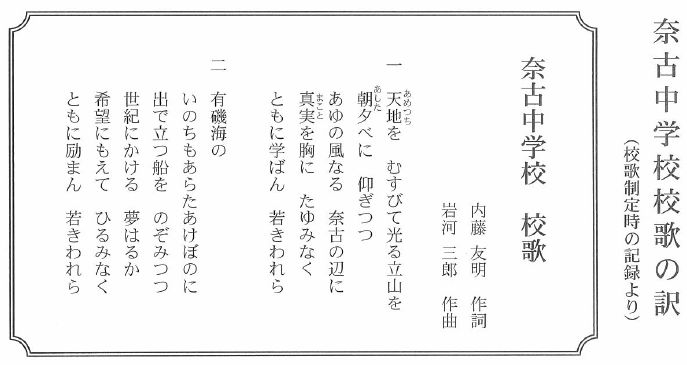 奈古中学校校歌の訳
（校歌制定時の記録より）
奈古中学校　校歌
内藤　友明　作詞
岩河　三郎　作曲
一　天地を　むすびて光る立山を
あめつち
朝夕べに　仰ぎつつ
あした
あゆの風なる　奈古の辺に
真実を胸に　たゆみなく
まこと
ともに学ばん　若きわれら
二　有磯海の
いのちもあらたあけぼのに
出で立つ船を　のぞみつつ
世紀にかける　夢はるか
希望にもえて　ひるみなく
ともに励まん　若きわれら